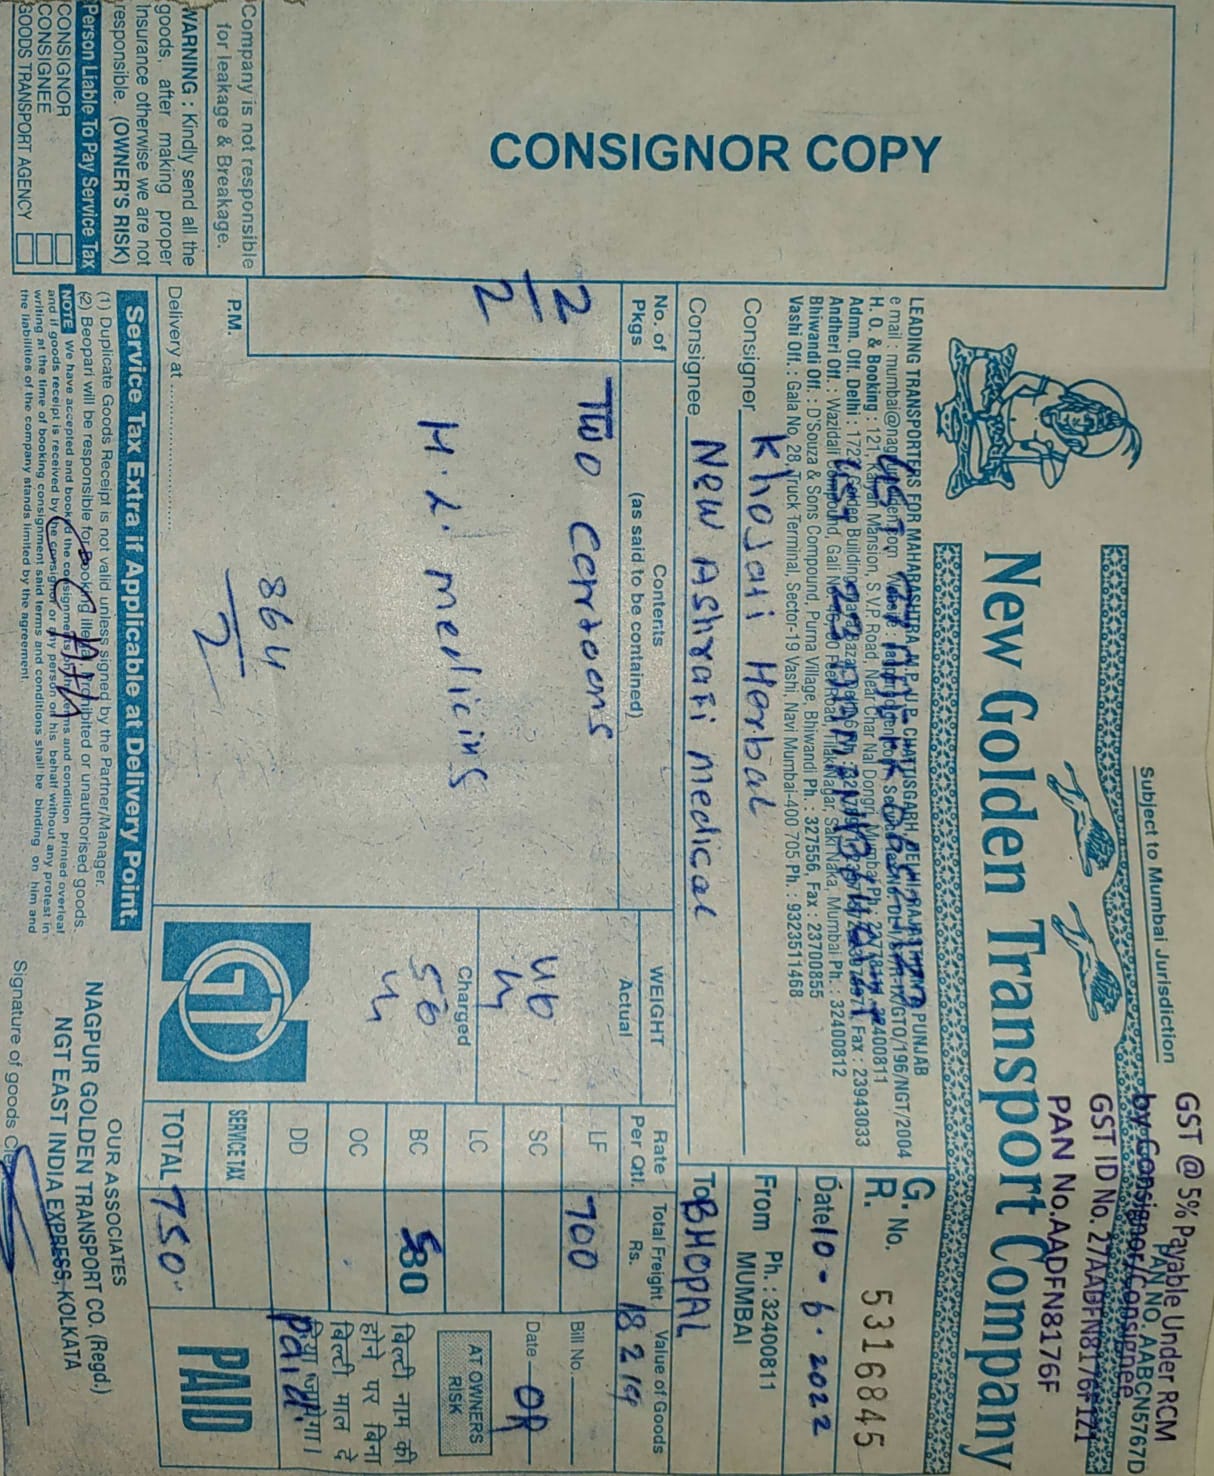 CONSIGNOR COPY
Company is not responsible
for leakage & Breakage.
WARNING : Kindly send all the
goods, after making proper
Insurance otherwise we are not
responsible. (OWNER'S RISK)
Person Liable To Pay Service Tax
CONSIGNOR
CONSIGNEE
GOODS TRANSPORT AGENCY
Subject to Mumbai Jurisdiction
GST @ 5% Payable Under RCM
by Consignor/Consignee
PAN NO. AABCN5767D
GST ID No. 27AADFN8176F1Z1
PAN No.AADFN8176F
New Golden Transport Company
LEADING TRANSPORTERS FOR MAHARASHTRA, M.P., U.P. CHATTISGARH, DELHI, RAJASTHAN, PUNJAB
e mail : mumbai@nag
H. O. & Booking : 121, Kalyan Mansion, S.V.P. Road, Near Char Nal, Dongri, Mumbai Ph.:
Admn. Off. Delhi : 172 Fax : 23943033
Andheri Off. : Wazidali Compound, Gali Saki Naka, Mumbai Ph. : 32400812
Bhiwandi Off : D'Souza & Sons Compound, Purna Village, Bhiwandi Ph. : 327556, Fax : 23700855
Vashi Off. : Gala No. 28, Truck Terminal, Sector-19 Vashi, Navi Mumbai-400 705 Ph. : 9323511468
G. R. No. 5316845
Date 10-6-2022
From Ph. : 32400811
MUMBAI
To BHOPAL
Consigner Khojati Herbal
Consignee New Ashrafi medical
No. of Pkgs
Contents
(as said to be contained)
WEIGHT
Actual
Rate Per Qtl.
Total Freight Rs.
Value of Goods
18219
2
2
TWO Cartoons
H. L. medicins
864
2
Charged
LF 700
SC
LC
BC
OC
DD
SERVICE TAX
TOTAL 750
Bill No.
Date
AT OWNERS RISK
बिल्टी नाम की
होने पर बिना
बिल्टी माल दे
दिया जायेगा।
Paid
PAID
P.M.
Delivery at
Service Tax Extra if Applicable at Delivery Point
(1) Duplicate Goods Receipt is not valid unless signed by the Partner/Manager.
(2) Beopari will be responsible for booking illegal prohibited or unauthorised goods
NOTE We have accepted and booked the consignment on terms and condition printed overleaf
and if goods receipt is received by the consignor or any person on his behalf without any protest in
writing at the time of booking consignment said terms and conditions shall be binding on him and
the liabilities of the company stands limited by the agreement.
OUR ASSOCIATES
NAGPUR GOLDEN TRANSPORT CO. (Regd.)
NGT EAST INDIA EXPRESS, KOLKATA
Signature of goods